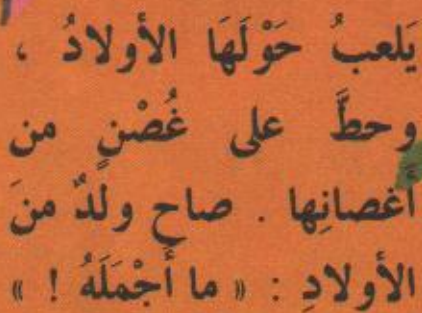 يَلعبُ حَوْلَهَا الأولادُ ،
وحطَّ على غُصْنٍ من
أغصانِها . صاح ولَدٌ منَ
الأولادِ : « ما أَجْمَلَهُ ! »